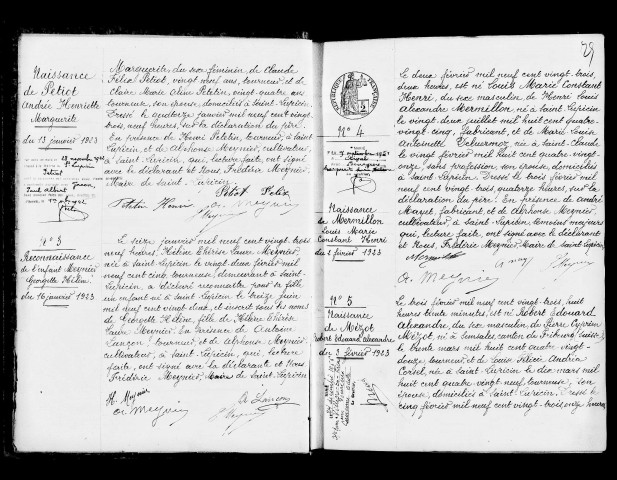 Naissance
de Petiot
Andrée Henriette
Marguerite
du 13 janvier 1923
Marguerite du sexe féminin, de Claude
Félix Petiot, vingt neuf ans, tourneur, et de
Claire Marie Aline Petetin, vingt quatre ans
tourneuse, son épouse, domiciliés à Saint-Lupicin.
Dressé le quatorze janvier mil neuf cent vingt-
trois, neuf heures, sur la déclaration du père.
En présence de Henri Petetin, tourneur, à Saint
Lupicin et de Alphonse Meynier, cultivateur,
à Saint-Lupicin, qui, lecture faite, ont signé
avec le déclarant et Nous, Frédéric Meynier,
Maire de Saint-Lupicin.
Petiot Félix
Petetin Henri
A. Meynier
N° 3
Reconnaissance
de Enfant Meynier
Georgette Hélène
du 16 janvier 1923
Le seize janvier mil neuf cent vingt-trois,
neuf heures, Hélène Thérèse Laure Meynier,
née à Saint-Lupicin le vingt deux février mil
neuf cent cinq, tourneuse, demeurant à Saint-
Lupicin, a déclaré reconnaître pour sa fille
un enfant né à Saint-Lupicin le treize juin
mil neuf cent vingt deux, et inscrit sous les noms
de Georgette Hélène, fille de Hélène Thérèse
Laure Meynier. En présence de Antoine
Lançon, tourneur, et de Alphonse Meynier,
cultivateur, à Saint-Lupicin, qui, lecture
faite, ont signé avec la déclarante et Nous
Frédéric Meynier, Maire de Saint-Lupicin
H. Meynier
A. Lançon
A. Meynier
29
RÉPUBLIQUE FRANÇAISE
N° 4
Naissance
de Mermillon
Louis Marie
Constant Henri
du 2 février 1923
Le deux février mil neuf cent vingt-trois,
deux heures, est né Louis Marie Constant
Henri, du sexe masculin, de Henri Louis
Alexandre Mermillon, né à Saint-Lupicin
le vingt deux juillet mil huit cent quatre-
vingt-cinq, fabricant, et de Marie Louise
Antoinette Delurmoz, née à Saint-Claude
le vingt février mil huit cent quatre-vingt-
onze, sans profession, son épouse, domiciliés
à Saint-Lupicin. Dressé le trois février mil
neuf cent vingt-trois, quatorze heures, sur la
déclaration du père. En présence de André
Mayet, fabricant, et de Alphonse Meynier,
cultivateur, à Saint-Lupicin, témoins majeurs
qui, lecture faite, ont signé avec le déclarant
et Nous, Frédéric Meynier, Maire de Saint-Lupicin.
A. Meynier
N° 5
Naissance
de Mizot
Robert Edouard Alexandre
du 3 février 1923
Le trois février mil neuf cent vingt-trois, huit
heures trente minutes, est né Robert Edouard
Alexandre, du sexe masculin, de Pierre Cyprien
Mizot, né à Semsales, canton de Fribourg, Suisse,
le trente mars mil huit cent quatre vingt-
douze, tourneur, et de Louise Félicie Andréa
Corsel, née à Saint-Lupicin le dix mars mil
huit cent quatre-vingt-neuf, tourneuse, son
épouse, domiciliés à Saint-Lupicin. Dressé le
cinq février mil neuf cent vingt-trois, onze heures